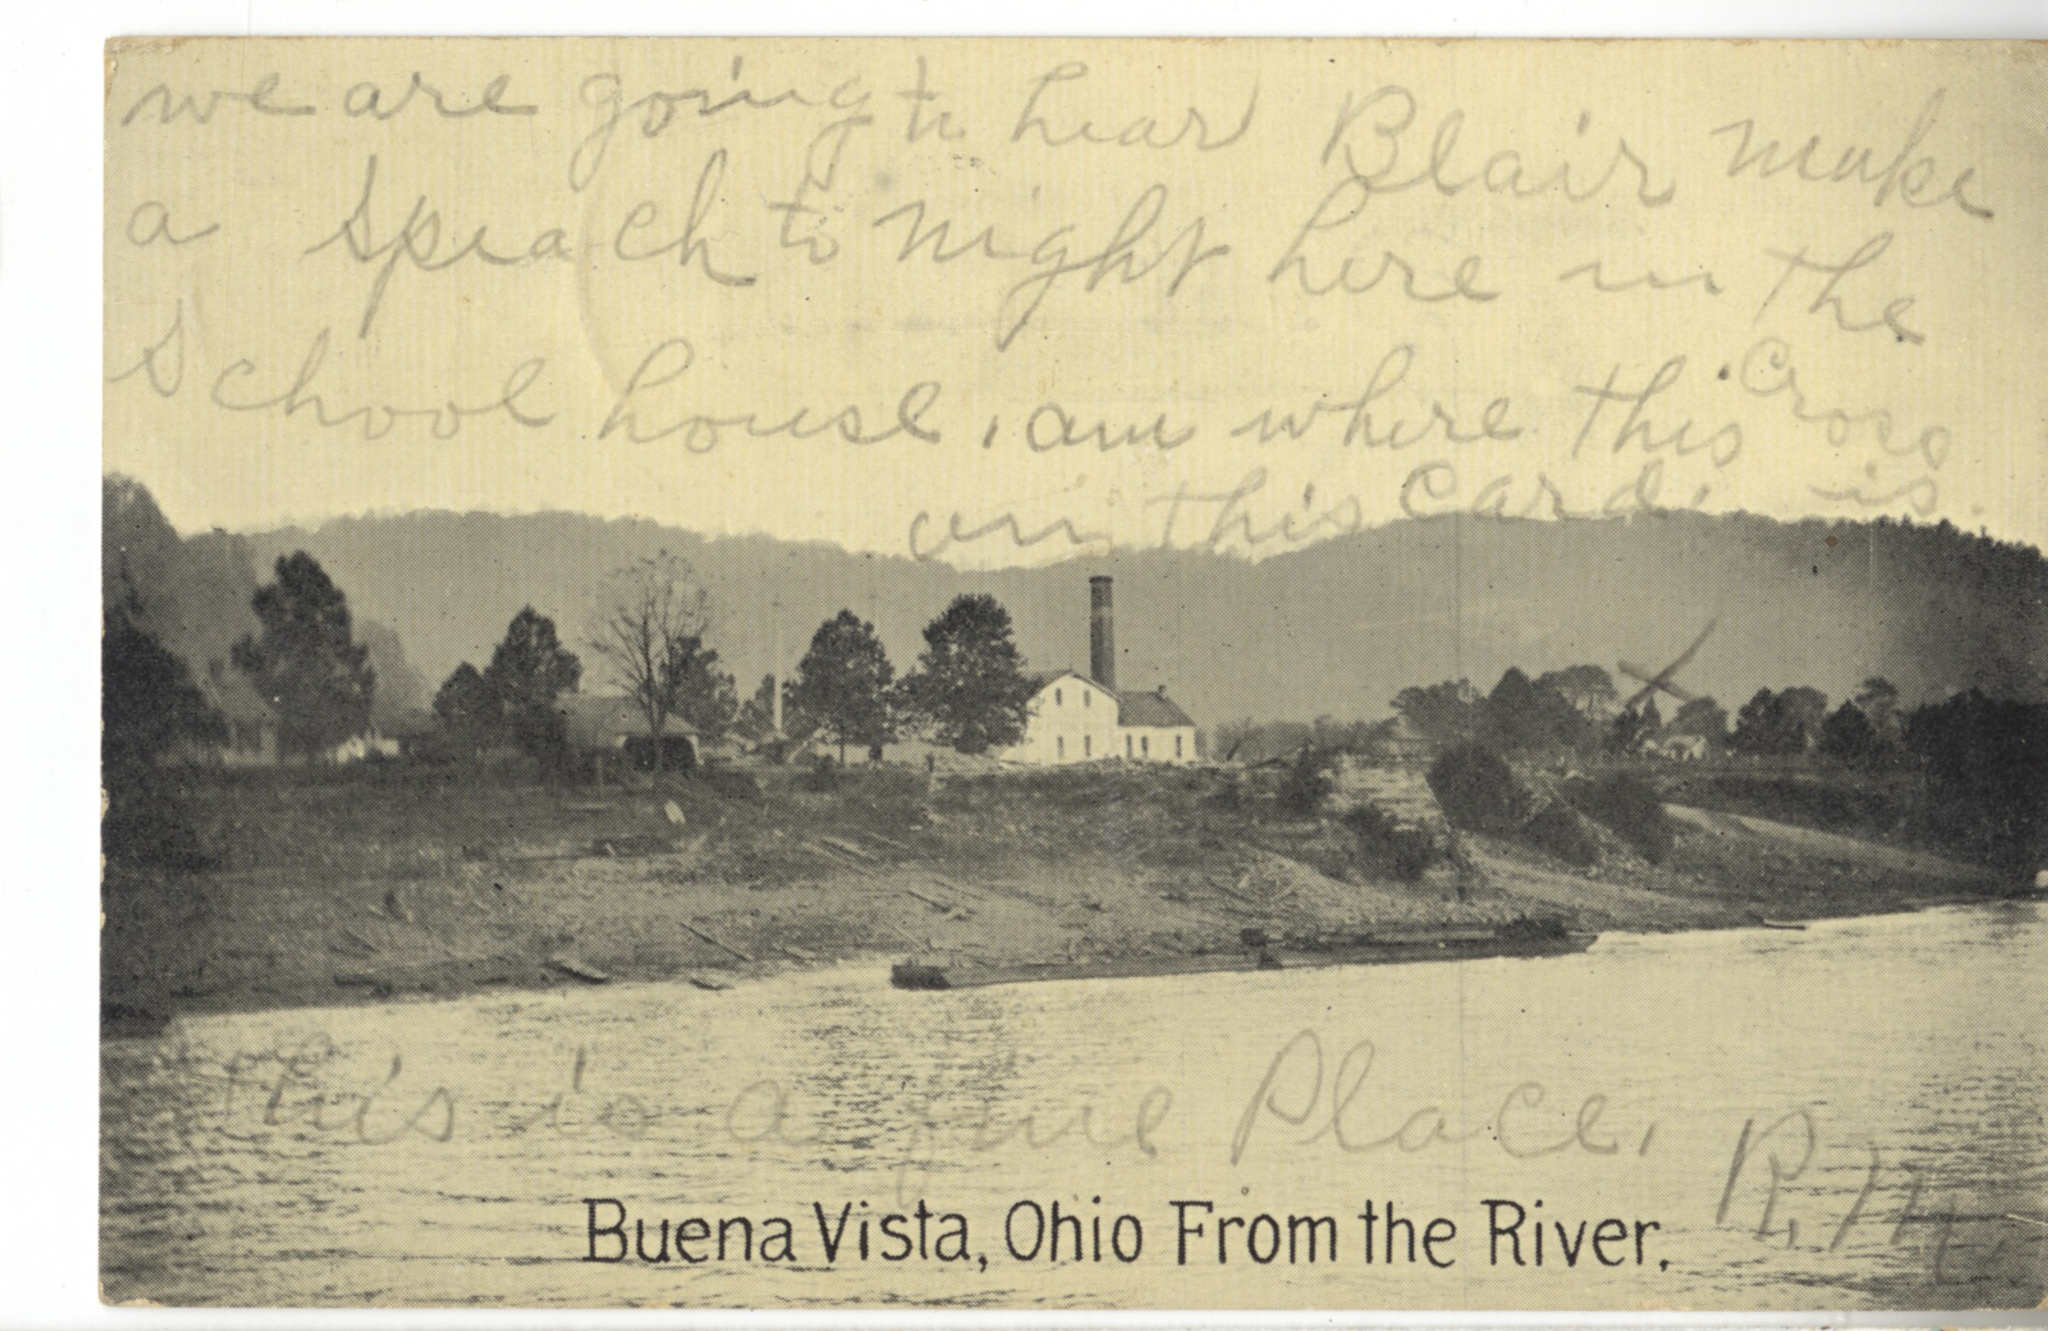 we are going to hear Blair make
a speach to night here in the
School house, am where this Cross
on this card is.
this is a fine Place.
R. M.
Buena Vista, Ohio From the River.